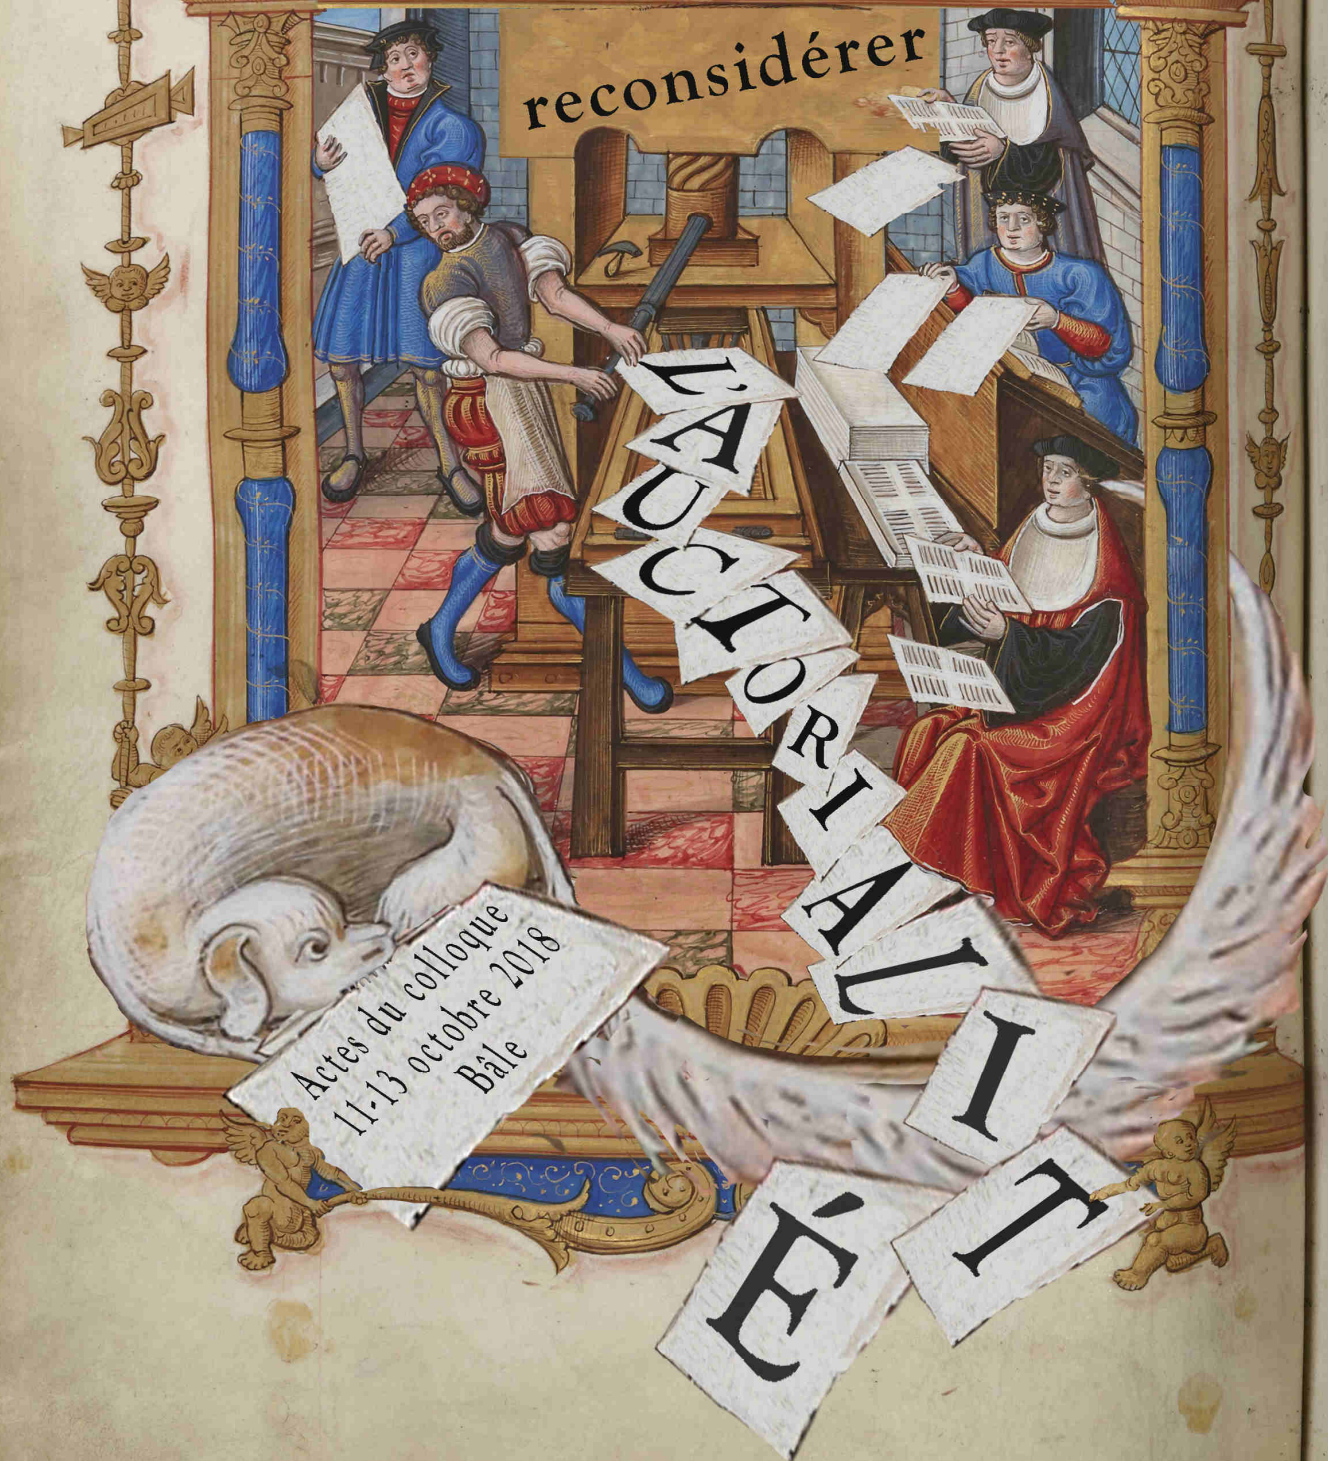 reconsidérer
L'AUCTORIALITÉ
Actes du colloque
11-13 octobre 2018
Bâle